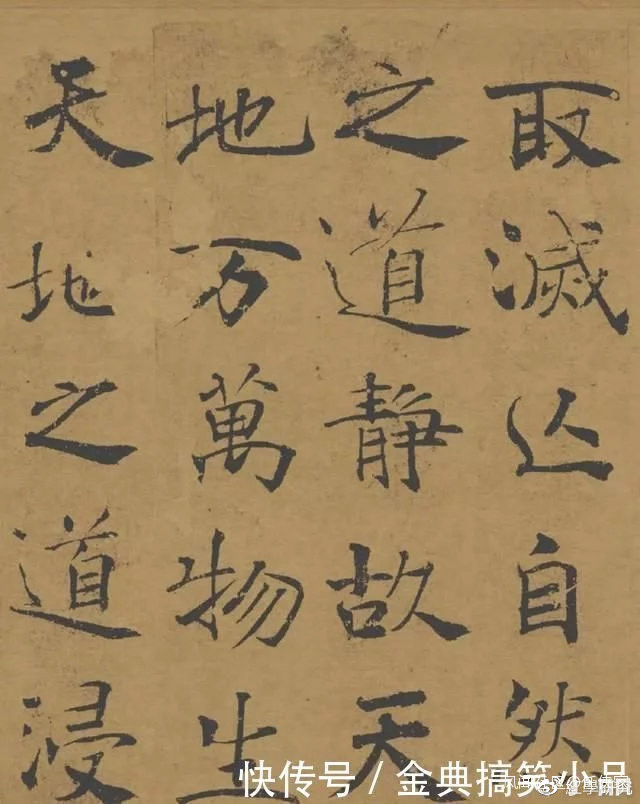 取滅亾自然
之道靜故天
地万萬物生
天地之道浸
快传号 / 金典搞笑小品